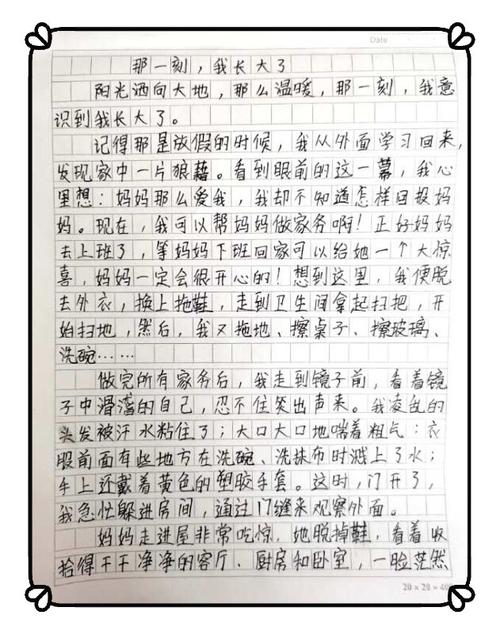 Date
那一刻，我长大了
阳光洒向大地，那么温暖，那一刻，我意
识到我长大了。
记得那是放假的时候，我从外面学习回来，
发现家中一片狼藉。看到眼前的这一幕，我心
里想：妈妈那么爱我，我却不知道怎样回报妈
妈。现在，我可以帮妈妈做家务啊！正好妈妈
去上班了，等妈妈下班回家可以给她一个大惊
喜，妈妈一定会很开心的！想到这里，我便脱
去外衣，换上拖鞋，走到卫生间拿起扫把，开
始扫地，然后，我又拖地、擦桌子、擦玻璃、
洗碗……
做完所有家务后，我走到镜子前，看着镜
子中滑落的自己，忍不住笑出声来。我凌乱的
头发被汗水粘住了；大口大口地喘着粗气；衣
服前面有些地方在洗碗、洗抹布时溅上了水；
手上还戴着黄色的塑胶手套。这时，门开了，
我急忙躲进房间，通过门缝来观察外面。
妈妈走进屋非常吃惊，她脱掉鞋，看着收
拾得干干净净的客厅、厨房和卧室，一脸茫然
20×20=400